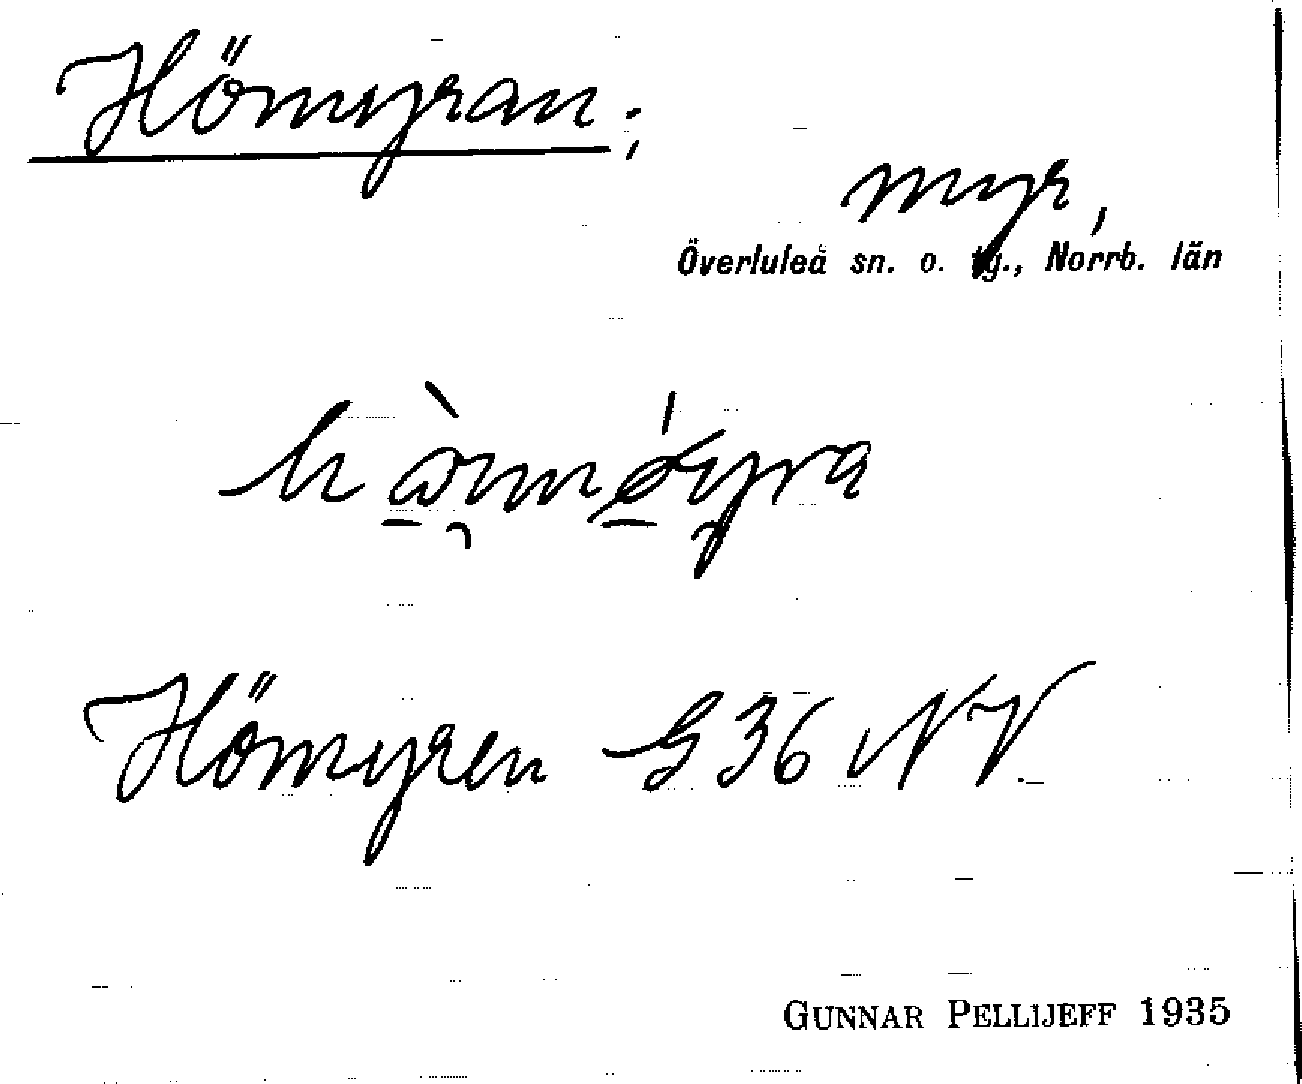 Hömyran;
myr,
Överluleå sn. o. tg., Norrb. län
Hömyren G36 NV.
GUNNAR PELLIJEFF 1935